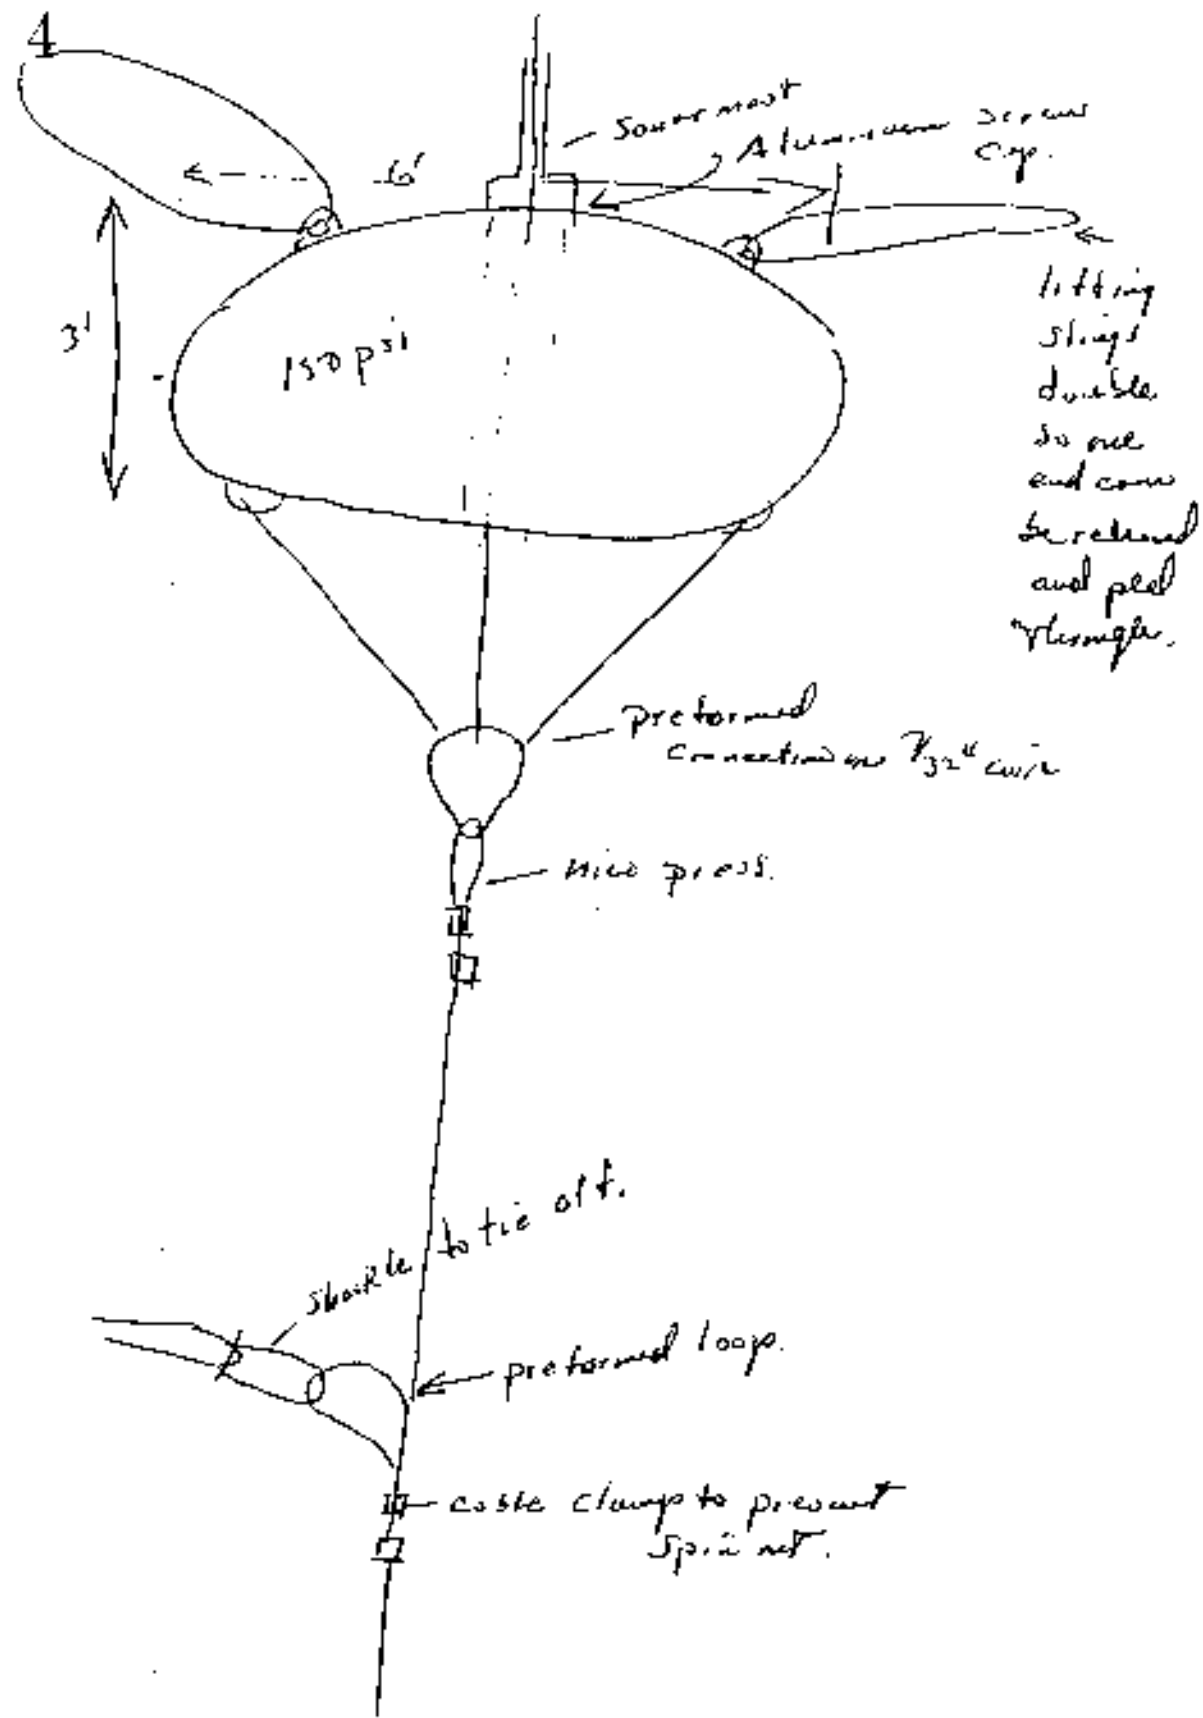 4
mast
Aluminum screw
cap.
6'
3'
150 psi
lifting
slings
double
so one
end can
be released
and
through.
preformed
connection 7/32"
nico press.
shackle to tie off.
preformed loop.
cable clamps to prevent